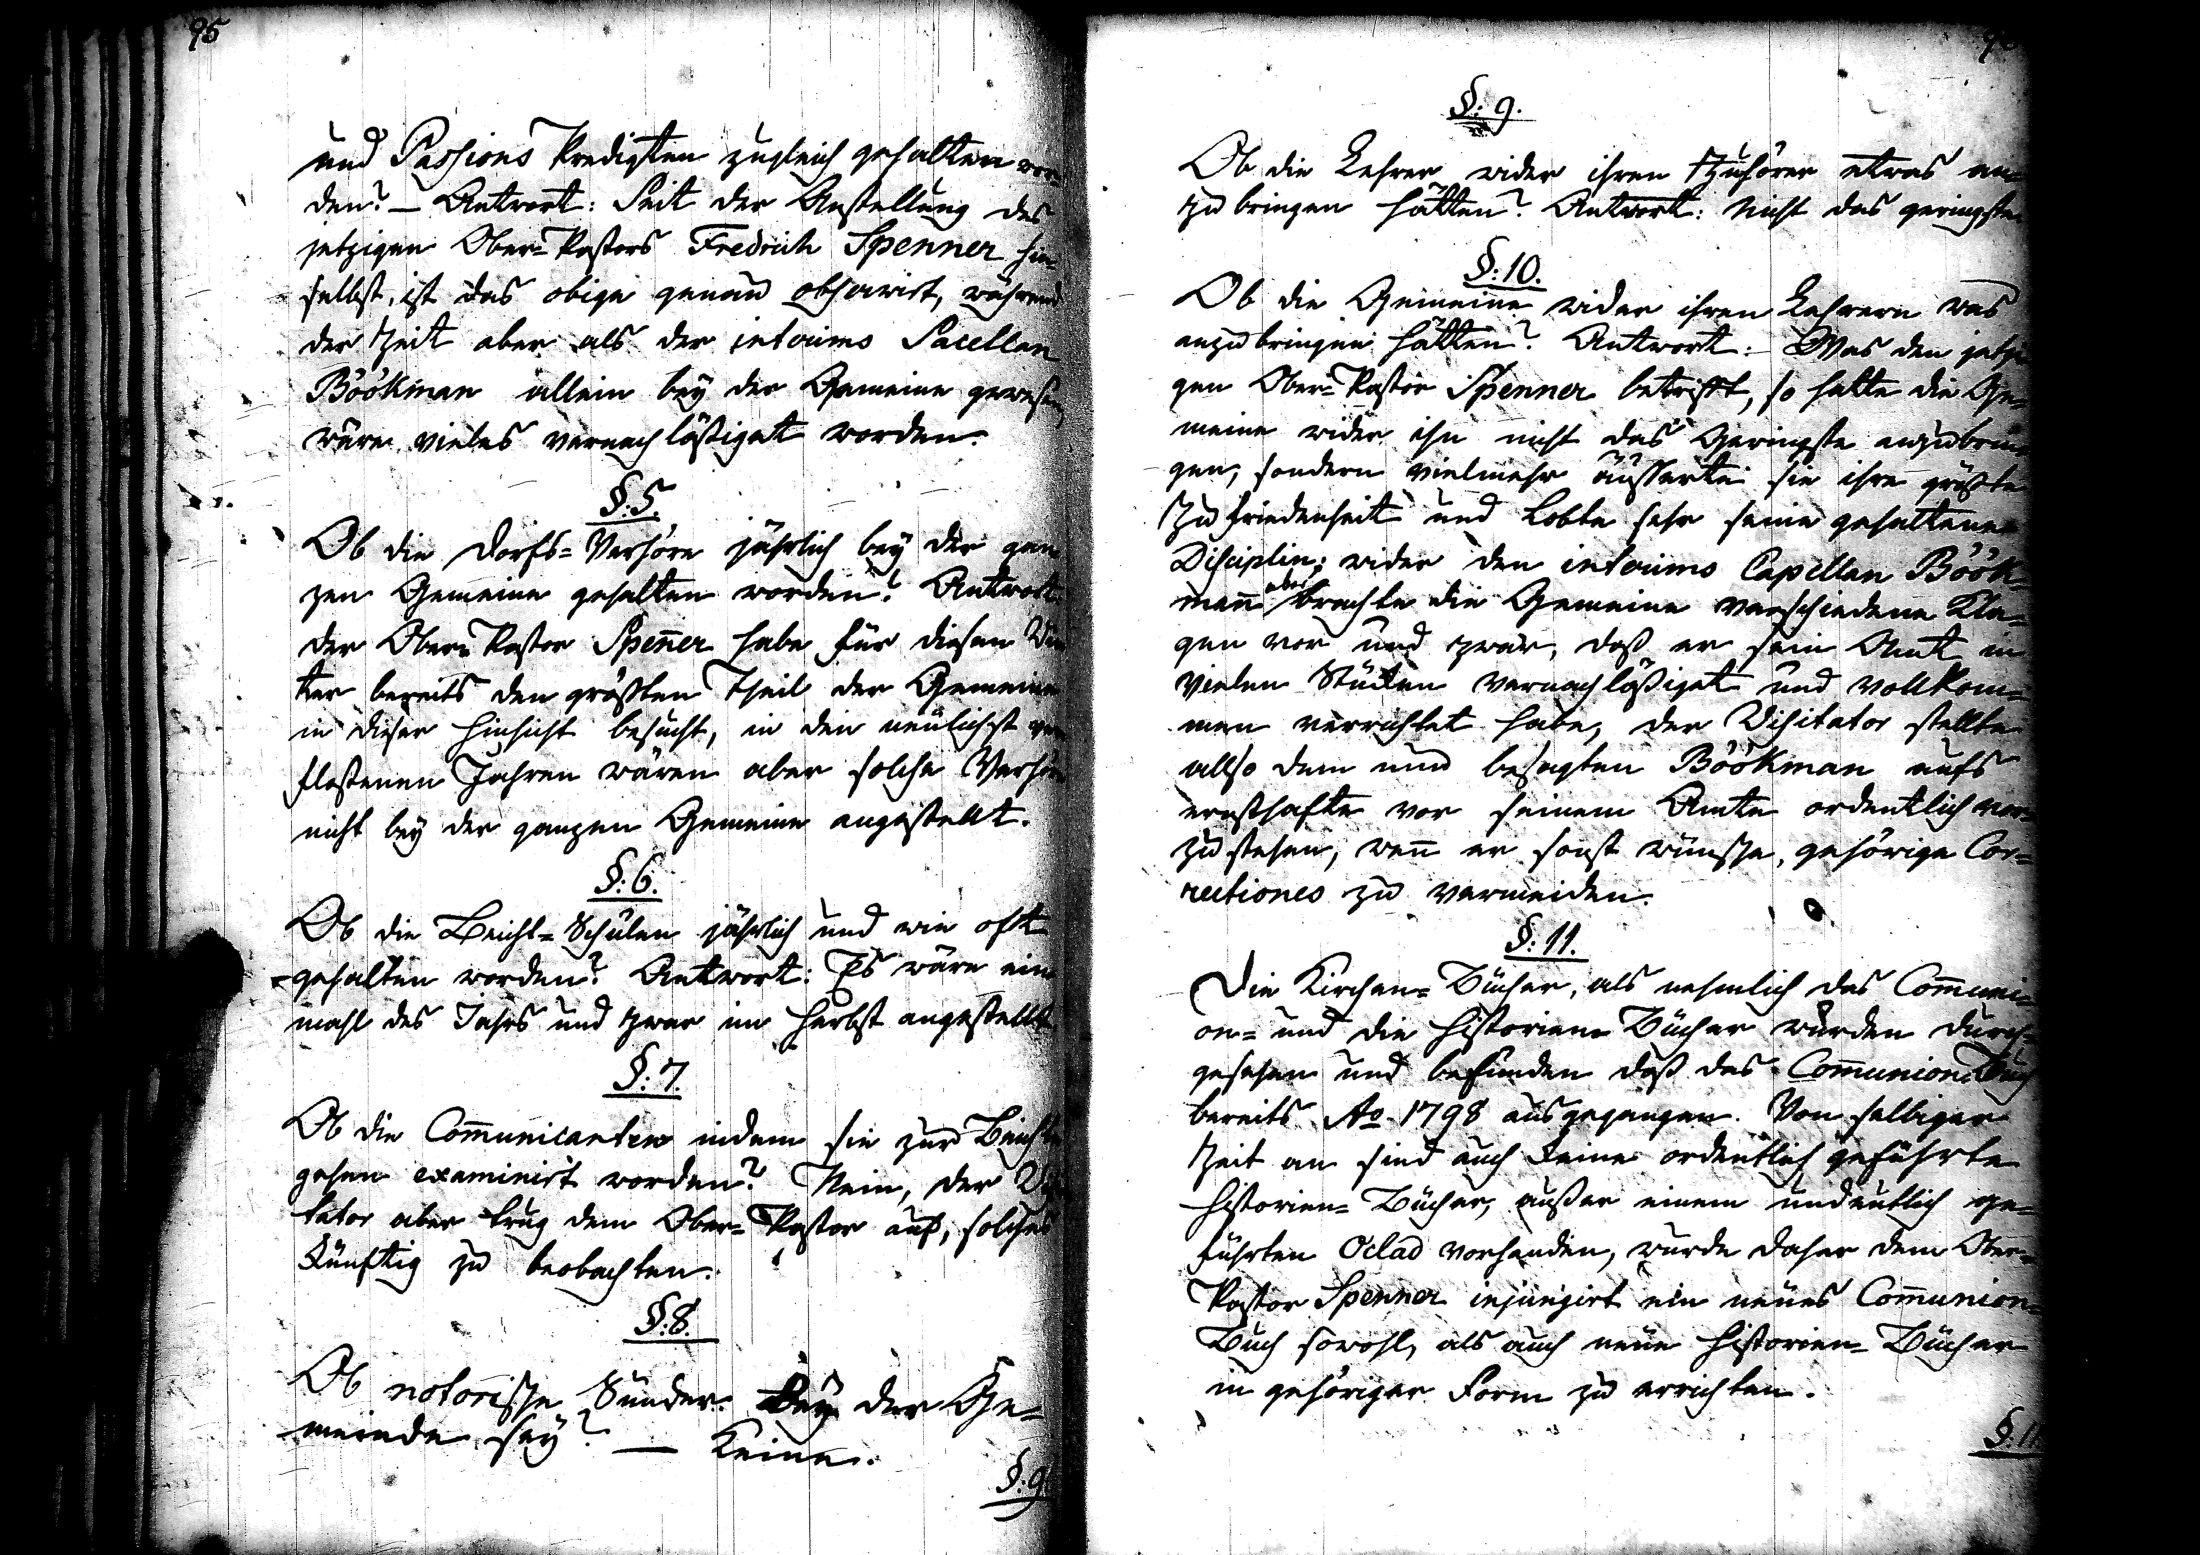 95
und Passions Predigten zugleich gehalten wor-
den? — Antwort: Seit der Anstellung des
jetzigen Ober-Pastors Fredrich Spenner hie-
selbst, ist das obige genau observirt, während
der Zeit aber als der interims Sacellan
Böökman allein bey der Gemeine gewesen
wäre vieles vernachläßiget worden.
§: 5.
Ob die Dorfs-Verhöre jährlich bey der gan
zen Gemeine gehalten worden? Antwort
der Ober-Pastor Spen̄er habe für diesen Win
ter bereits den größten Theil der Gemeine
in dieser Hinsicht besucht, in den neulichst ver
floßenen Jahren wären aber solche Verhöre
nicht bey der ganzen Gemeine angestellt.
§: 6.
Ob die Beicht-Schulen jährlich und wie oft
gehalten worden? Antwort: Es wäre ein
mahl des Jahrs und zwar im Herbst angestellt
§: 7.
Ob die Com̄unicanten indem sie zur Beichte
gehen examinirt worden? Nein, der Visi
tator aber trug dem Ober-Pastor auf, solches
künftig zu beobachten.
§: 8.
Ob notorische Sünder bey der Ge-
meinde sey? — Keine.
§: 9
§: 9.
Ob die Lehrer wider ihren Zuhörer etwas an-
zubringen hätten? Antwort: Nicht das geringste
§: 10.
Ob die Gemeine wider ihren Lehrern was
anzubringen hätten? Antwort: Was den jetzi
gen Ober-Pastor Spenner betrifft, so hatte die Ge-
meine wider ihn nicht das Geringste anzubrin
gen, sondern vielmehr äusserte sie ihre größte
Zufriedenheit und lobte sehr seine gehaltene
Disciplin; wider den interims Capellan Böök-
man̄ aber brachte die Gemeine verschiedene Kla-
gen vor und zwar, daß er sein Amt in
vielen Stücken vernachläßiget und vollkom-
men verrichtet habe, der Visitator stellte
also dem nun besagten Böökman aufs
ernsthafte vor seinem Amte ordentlich vor-
zustehen, wen̄ er sonst wünsche, gehörige Cor-
rectiones zu vermeiden.
§: 11.
Die Kirchen-Bücher, als nehmlich das Com̄uni-
on- und die Historien-Bücher wurden durch-
gesehen und befunden daß das Com̄union-Buch
bereits Ao 1798 ausgegangen. Von selbiger
Zeit an sind auch keine ordentlich geführte
Historien-Bücher, außer einem undeutlich ge-
führten Oclad vorhanden, wurde daher dem Ober-
Pastor Spenner injungirt ein neues Com̄union-
Buch sowohl, als auch neue Historien-Bücher
in gehöriger Form zu errichten.